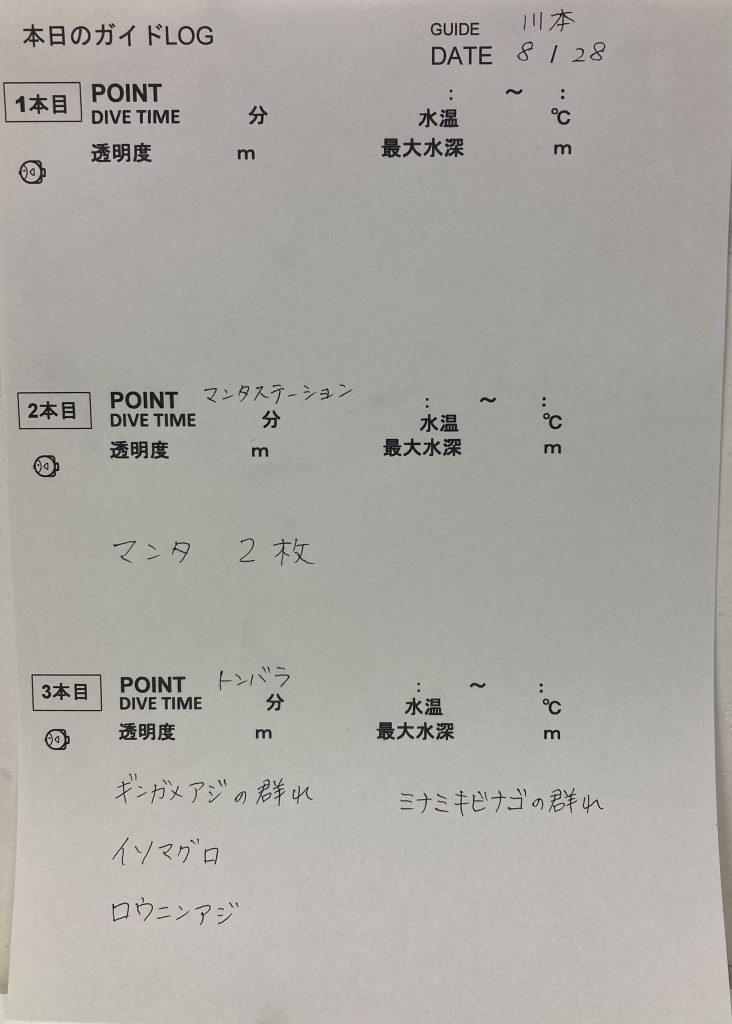 本日のガイドLOG
GUIDE 川本
DATE 8 / 28
1本目 POINT : ～ :
DIVE TIME 分 水温 ℃
透明度 m 最大水深 m
2本目 POINT マンタステーション : ～ :
DIVE TIME 分 水温 ℃
透明度 m 最大水深 m
マンタ 2枚
3本目 POINT トンバラ : ～ :
DIVE TIME 分 水温 ℃
透明度 m 最大水深 m
ギンガメアジの群れ ミナミキビナゴの群れ
イソマグロ
ロウニンアジ